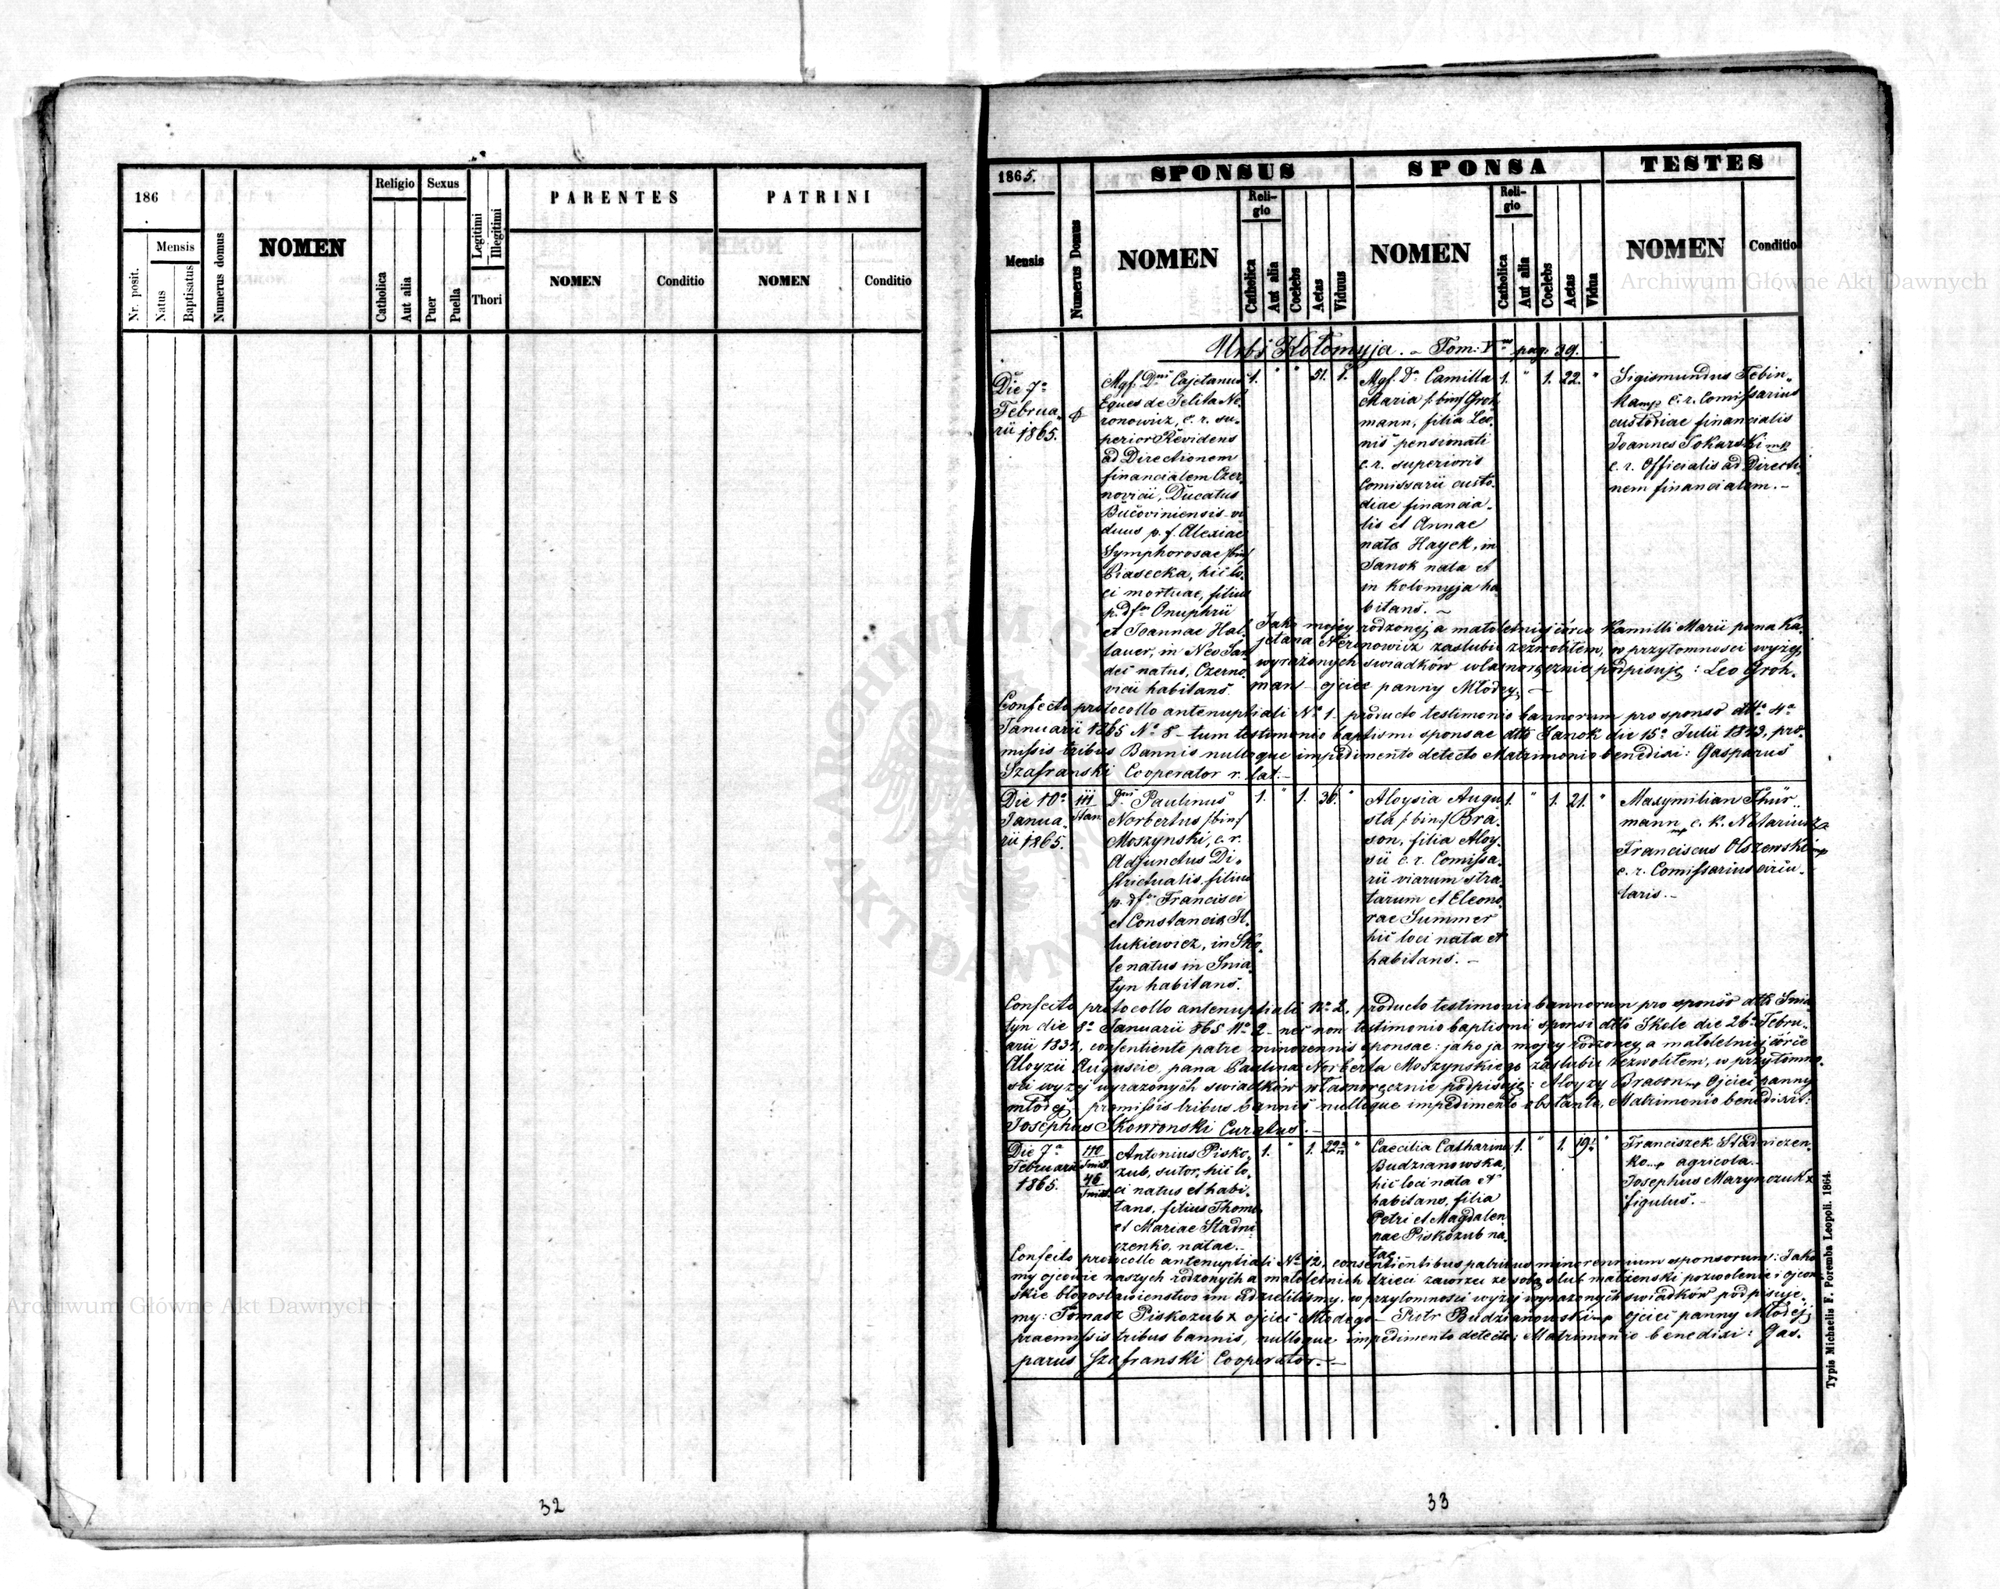 186
Nr. posit.
Mensis
Natus
Baptisatus
Numerus domus
NOMEN
Religio
Catholica
Aut alia
Sexus
Puer
Puella
Legitimi
Illegitimi
Thori
PARENTES
NOMEN
Conditio
PATRINI
NOMEN
Conditio
32
1865.
Mensis
Numerus Domus
SPONSUS
NOMEN
Reli-
gio
Catholica
Aut alia
Coelebs
Aetas
Viduus
SPONSA
NOMEN
Reli-
gio
Catholica
Aut alia
Coelebs
Aetas
Vidua
TESTES
NOMEN
Conditio
Urbs Kołomyja. – Tom: V pag. 39.
Die 7a
Februa-
rii 1865.
Mgf. Dnus Cajetanus
Eques de Jelita Ne-
ronowicz, c. r. su-
perior Revidens
ad Directionem
financialem Czer-
novicii, Ducatus
Bucoviniensis vi-
duus p. f. Alexiae
Symphorosae /bin/
Piasecka, hic lo-
ci mortuae, filius
p. dfor Onuphrii
et Joannae Hal-
lauer, in Neo San-
dec natus, Czerno-
vicii habitans.
1. " " 51. 1.
Mgf. Da Camilla
Maria /: bin:/ Groh
mann, filia Leo-
nis pensionati
c. r. superioris
Comissarii custo-
diae financia-
lis et Annae
nata Hayek, in
Sanok nata et
in Kolomyja ha
bitans. ~
1. " 1. 22. "
Sigismundus Tebin-
ka mp c. r. Comissarius
custodiae financialis
Joannes Tokarski mp
c. r. Officialis ad Directi-
nem financialem. –
Jako mojey rodzonej a małoletniej córce Kamilli Marii pana Ka-
jetana Neronowicz zaslubic zezwoliłem, w przytomności wyżej
wyrażonych swiadków własnoręcznie podpisuję: Leo Groh-
man ojciec panny Młodey. –
Confecto protocollo antenuptiali No 1 – producto testimonio bannorum pro sponso dtto 4a
Januarii 1865 No 8 – tum testimonio baptismi sponsae dtto Sanok die 15a Julii 1843, prae-
missis tribus Bannis nulloque impedimento detecto Matrimonio benedixi: Gasparus
Szafranski Cooperator r. lat. –
Die 10a
Janua-
rii 1865.
111
Stan.
Dnus Paulinus
Norbertus /:bin:/
Moszynski, c. r.
Adjunctus Di-
strictualis, filius
p. dfor Francisci
et Constancia It-
lukiewicz, in Sko-
le natus in Snia-
tyn habitans.
1. " 1. 30. "
Aloysia Augu
sta /: bin:/ Bra-
son, filia Aloy-
sii c. r. Comissa-
rii viarum stra-
tarum et Eleono-
rae Summer
hic loci nata et
habitans. –
1. " 1. 21. "
Maxymilian Thür-
mann mp c. k. Notariusz
Franciscus Olszewski mp
c. r. Comissarius circu-
laris. –
Confecto protocollo antenuptiali No 2, producto testimonio bannorum pro sponso dtto Snia-
tyn die 8a Januarii 865 No 2 – nec non testimonio baptismi sponsi dtto Skole die 26a Febru-
arii 1834, consentiente patre minorennis sponsae: jako ja mojey rodzoney a małoletniej córce
Aloyzii Auguscie pana Paulina Norberta Moszynskiego zaslubic zezwoliłem, w przytomno-
sci wyżej wyrażonych swiadków własnoręcznie podpisuję: Aloyzy Brason mp Ojciec panny
młodej, praemissis tribus bannis nulloque impedimento obstante, Matrimonio benedixit:
Josephus Skowronski Curatus. –
Die 7a
Februarii
1865.
110
Sniat.
46
Sniat.
Antonius Pisko-
zub, sutor, hic lo-
ci natus et habi-
tans, filius Thomae
et Mariae Stadni-
czenko, natae. –
1. " 1. 22 "
Caecilia Catharina
Budzianowska,
hic loci nata et
habitans, filia
Petri et Magdalen-
nae Piskozub na-
tae.
1. " 1. 19. "
Franciszek Stadniczen-
ko mp agricola. –
Josephus Marynczuk x
figulus. –
Confecto protocollo antenuptiali No 12, consentientibus patribus minorennium sponsorum: Jako
my ojcowie naszych rodzonych a małoletnich dzieci zawrzec ze sobą slub małżenski pozwolenie i ojcow-
skie błogosławienstwo im udzieliliśmy, w przytomności wyżej wyrażonych swiadków podpisuje-
my: Tomasz Piskozub x ojciec Młodego – Piotr Budzianowski mp ojciec panny Młodej,
praemissis tribus bannis, nulloque impedimento detecto, Matrimonio benedixi: Gas-
parus Szafranski Cooperator. –
Typis Michaelis F. Poremba Leopoli. 1864.
33
Archiwum Główne Akt Dawnych
Archiwum Główne Akt Dawnych